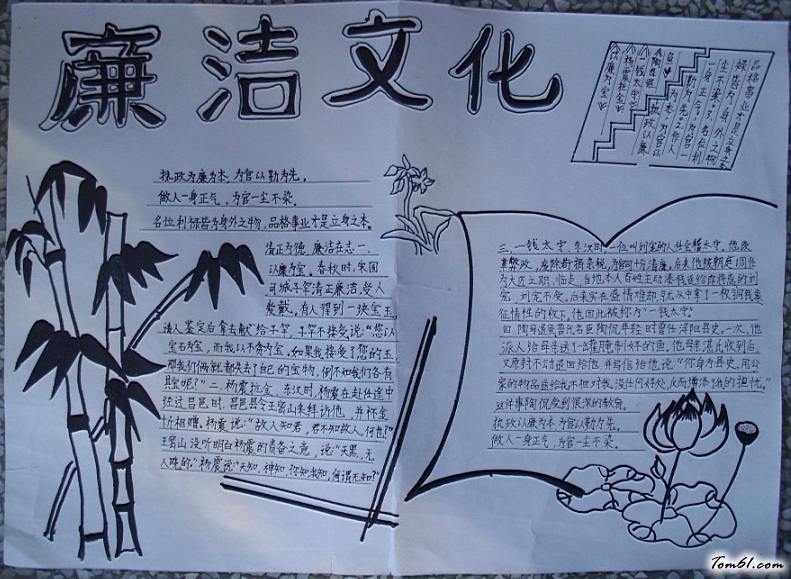 廉洁文化
品格事业才是立身之本
媒皆为身外之物
尘不染，名位利
一身正气，为官一
勤为先，做人
执政为廉为本，为官以
陶母退鱼
一钱太守
杨震拒金
以廉为宝
执政为廉为本，为官以勤为先，
做人一身正气，为官一尘不染。
名位利禄皆为身外之物，品格事业才是立身之本。
清正为德，廉洁在志一、
以廉为宝，春秋时，宋国
司城子罕清正廉洁，受人
爱戴。有人得到一块宝玉
请人鉴定后拿去献给子罕，子罕不接受，说："您以
宝石为宝，而我以不贪为宝。如果我接受了您的玉，
那我们俩就都失去了自己的宝物，倒不如我们各有
其宝呢！"二、杨震拒金，东汉时，杨震在赴任途中
经过昌邑时，昌邑县令王密山来拜访他，并怀金
访相赠。杨震说："故人知君，君不知故人，何也？"
王密山没听明白杨震的责备之意，说："天黑，无
人晓的。"杨震说："天知，神知，你知我知，何谓不知？"
三、一钱太守，东汉时，一位叫刘宠的人任会稽太守，他改
革弊政，废除苛捐杂税，为官十分清廉。后来他被朝廷调作
为大匠之职，临走，当地本人百姓主动凑钱送给即将离的刘
宠，刘宠不受。后来实在盛情难却，就从中拿了一枚铜钱象
征情性的收下。他因此被称为"一钱太守"。
四、陶母退鱼晋代名臣陶侃年轻时曾任浔阳县吏。一次，他
派人给母亲送了一罐腌制好的鱼。他母亲湛氏收到后
又原封不动退回给他，并写信给他说："你身为县吏，用公
家的物品送给我，不但对我没任何好处，反而增添我的担忧。"
这件事陶侃受到很深的教育。
执政以廉为本为官以勤为先。
做人一身正气，为官一尘不染。
Tom61.com